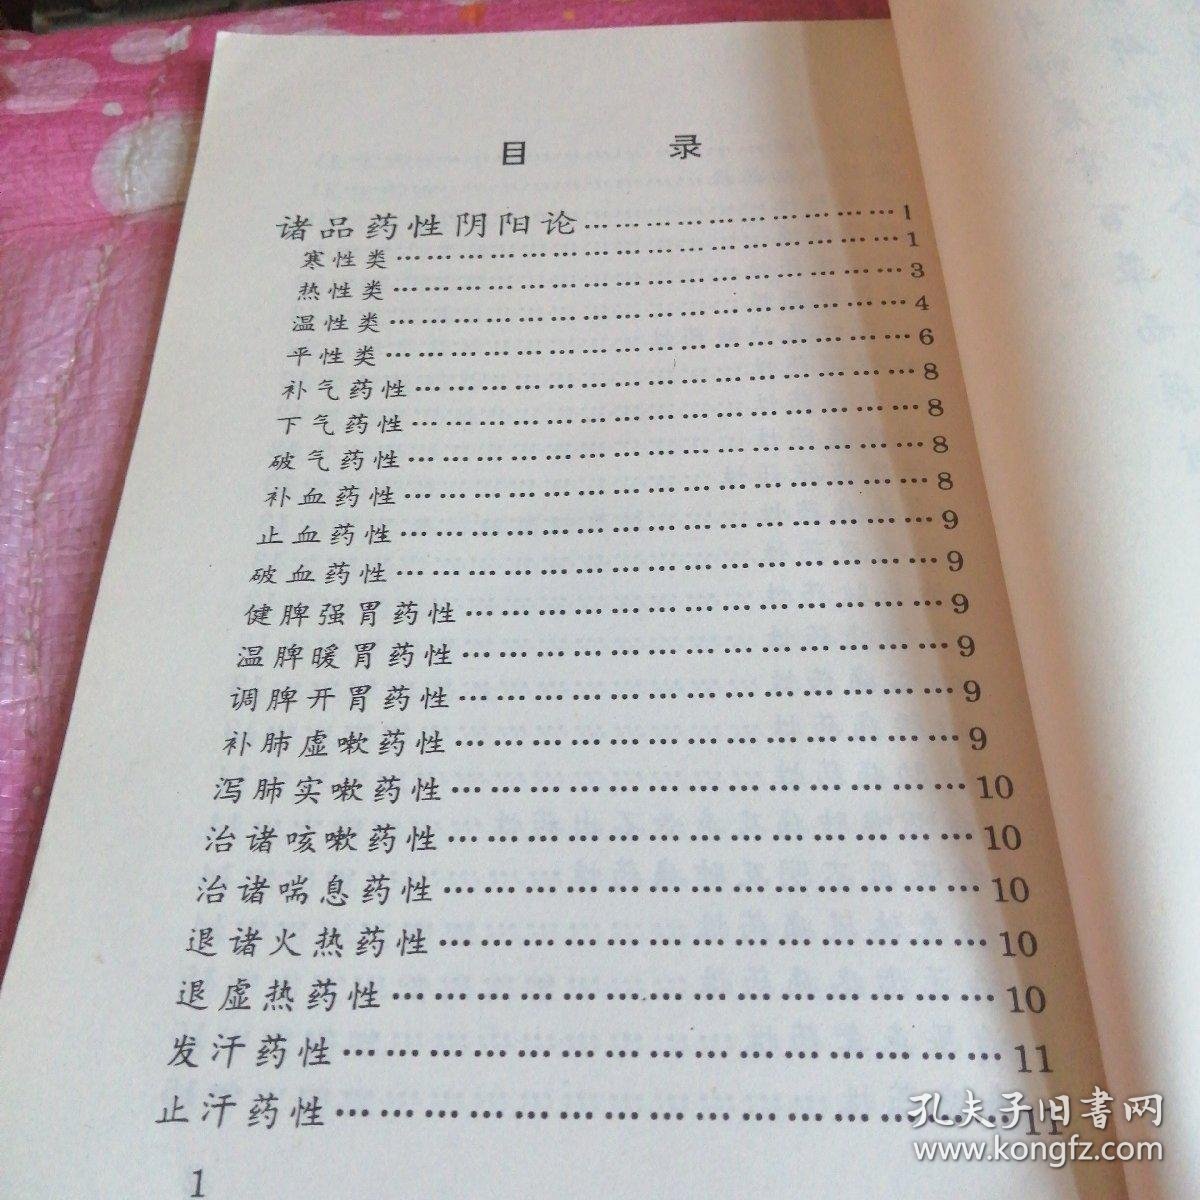 目 录
诸品药性阴阳论……………………………1
寒性类……………………………………………1
热性类……………………………………………3
温性类……………………………………………4
平性类……………………………………………6
补气药性…………………………………………8
下气药性…………………………………………8
破气药性…………………………………………8
补血药性…………………………………………8
止血药性…………………………………………9
破血药性…………………………………………9
健脾强胃药性……………………………………9
温脾暖胃药性……………………………………9
调脾开胃药性……………………………………9
补肺虚嗽药性……………………………………9
泻肺实嗽药性……………………………………10
治诸咳嗽药性……………………………………10
治诸喘息药性……………………………………10
退诸火热药性……………………………………10
退虚热药性………………………………………10
发汗药性…………………………………………11
止汗药性…………………………………………11
1
孔夫子旧书网
www.kongfz.com